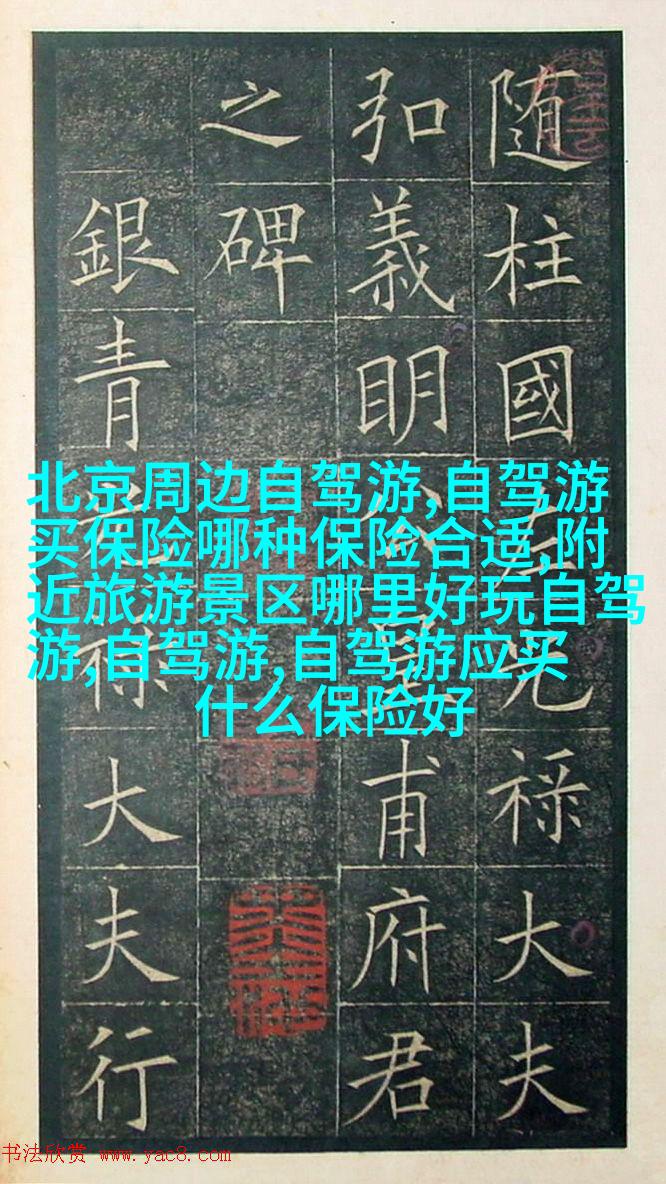 随柱國左光禄大夫
弘義眀公皇甫府君
之碑
銀青光禄大夫行
北京周边自驾游,自驾游
买保险哪种保险合适,附
近旅游景区哪里好玩自驾
游,自驾游,自驾游应买
什么保险好
书法欣赏 www.yac8.com